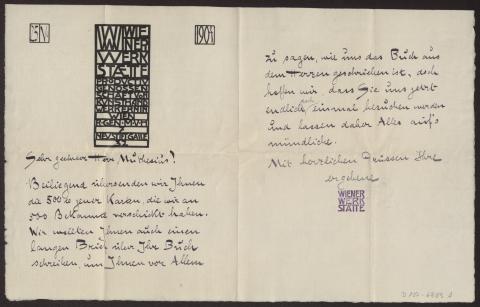 25 IV
1904
WIENER
WERK
STÆTTE
PRODUCTIV
GENOSSEN
SCHAFT VON
KUNSTHAND
WERKERN IN
WIEN
NEUSTIFTGASSE
32
Sehr geehrter Herr Muthesius!
Beiliegend übersenden wir Ihnen
die 500te jener Karten, die wir an
500 Bekannte verschickt haben.
Wir wollten Ihnen auch einen
langen Brief über Ihr Buch
schreiben, um Ihnen vor Allem
zu sagen, wie uns das Buch aus
dem Herzen geschrieben ist, doch
hoffen wir, dass Sie uns jetzt
endlich auch einmal besuchen werden
und lassen daher Alles auf's
mündliche.
Mit herzlichen Grüssen Ihre
ergebene
WIENER
WERK
STÄTTE